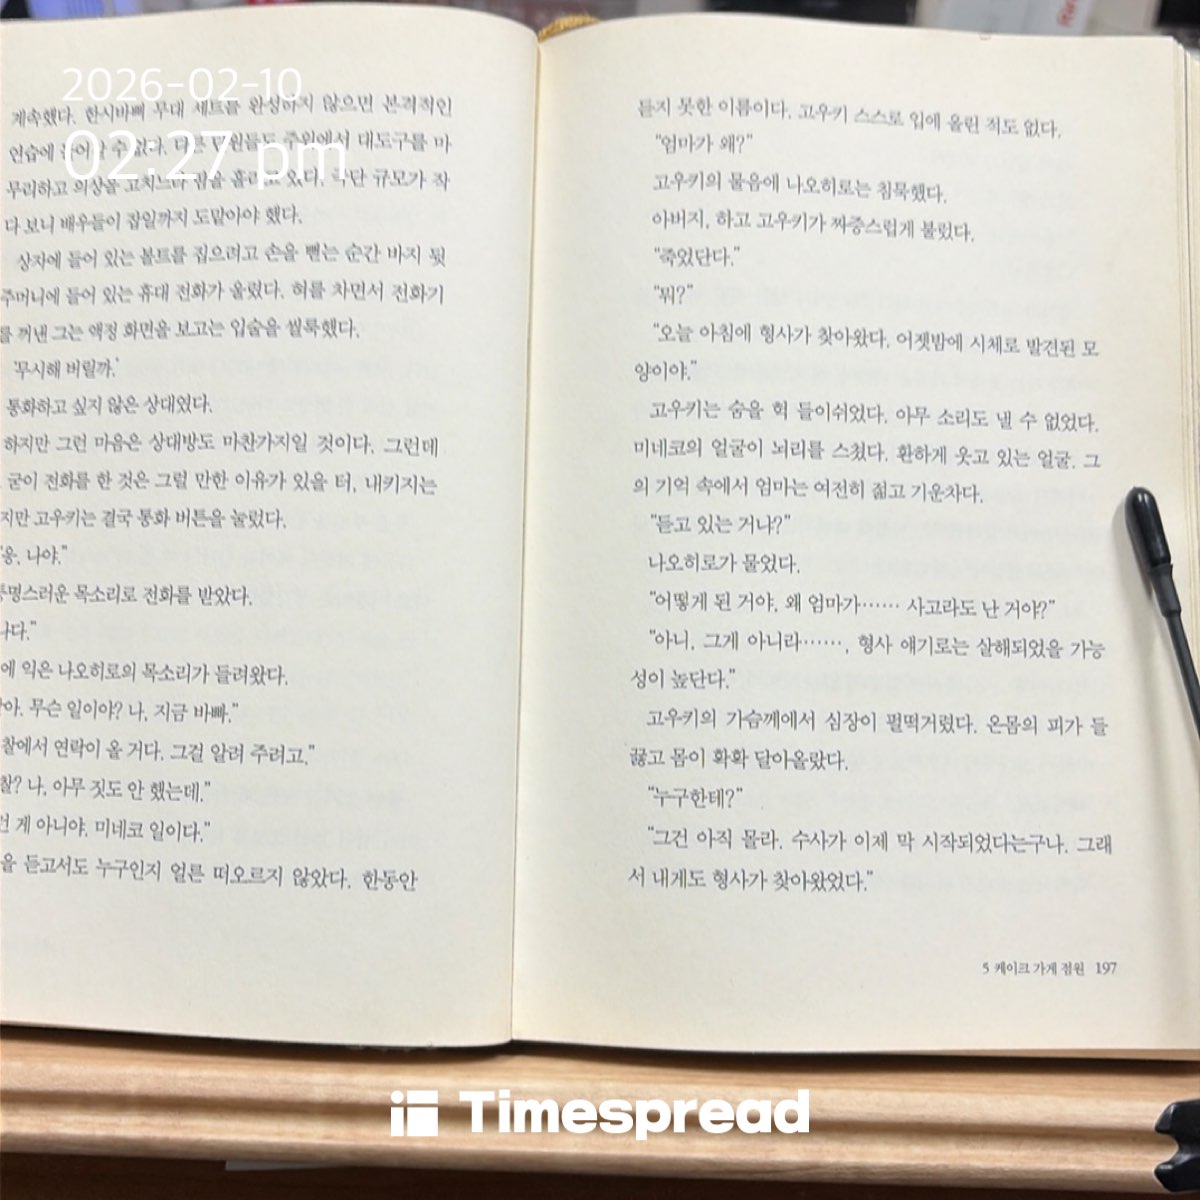 2026-02-10
02:27 pm
계속했다. 한시바삐 무대 세트를 완성하지 않으면 본격적인
연습에 들어갈 수 없다. 다른 단원들도 주위에서 대도구를 마
무리하고 의상을 고치느라 땀을 흘리고 있다. 극단 규모가 작
다 보니 배우들이 잡일까지 도맡아야 했다.
상자에 들어 있는 볼트를 집으려고 손을 뻗는 순간 바지 뒷
주머니에 들어 있는 휴대 전화가 울렸다. 혀를 차면서 전화기
를 꺼낸 그는 액정 화면을 보고는 입술을 씰룩했다.
'무시해 버릴까.'
통화하고 싶지 않은 상대였다.
하지만 그런 마음은 상대방도 마찬가지일 것이다. 그런데
굳이 전화를 한 것은 그럴 만한 이유가 있을 터, 내키지는
지만 고우키는 결국 통화 버튼을 눌렀다.
"응, 나야."
퉁명스러운 목소리로 전화를 받았다.
나다."
에 익은 나오히로의 목소리가 들려왔다.
아. 무슨 일이야? 나, 지금 바빠."
찰에서 연락이 올 거다. 그걸 알려 주려고."
찰? 나, 아무 짓도 안 했는데."
런 게 아니야. 미네코 일이다."
을 듣고서도 누구인지 얼른 떠오르지 않았다. 한동안
듣지 못한 이름이다. 고우키 스스로 입에 올린 적도 없다.
"엄마가 왜?"
고우키의 물음에 나오히로는 침묵했다.
아버지, 하고 고우키가 짜증스럽게 불렀다.
"죽었단다."
"뭐?"
"오늘 아침에 형사가 찾아왔다. 어젯밤에 시체로 발견된 모
양이야."
고우키는 숨을 헉 들이쉬었다. 아무 소리도 낼 수 없었다.
미네코의 얼굴이 뇌리를 스쳤다. 환하게 웃고 있는 얼굴. 그
의 기억 속에서 엄마는 여전히 젊고 기운차다.
"듣고 있는 거냐?"
나오히로가 물었다.
"어떻게 된 거야, 왜 엄마가…… 사고라도 난 거야?"
"아니, 그게 아니라……, 형사 얘기로는 살해되었을 가능
성이 높단다."
고우키의 가슴께에서 심장이 펄떡거렸다. 온몸의 피가 들
끓고 몸이 확확 달아올랐다.
"누구한테?"
"그건 아직 몰라. 수사가 이제 막 시작되었다는구나. 그래
서 내게도 형사가 찾아왔었다."
5 케이크 가게 점원 197
Timespread